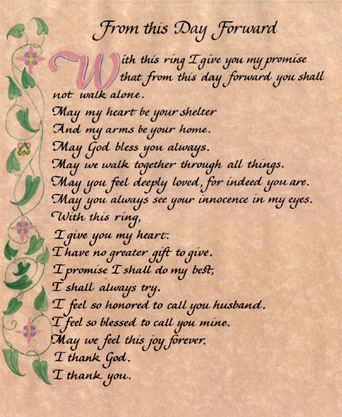 From this Day Forward
With this ring I give you my promise
that from this day forward you shall
not walk alone.
May my heart be your shelter
And my arms be your home.
May God bless you always.
May we walk together through all things.
May you feel deeply loved, for indeed you are.
May you always see your innocence in my eyes.
With this ring,
I give you my heart.
I have no greater gift to give.
I promise I shall do my best,
I shall always try.
I feel so honored to call you husband.
I feel so blessed to call you mine.
May we feel this joy forever.
I thank God.
I thank you.